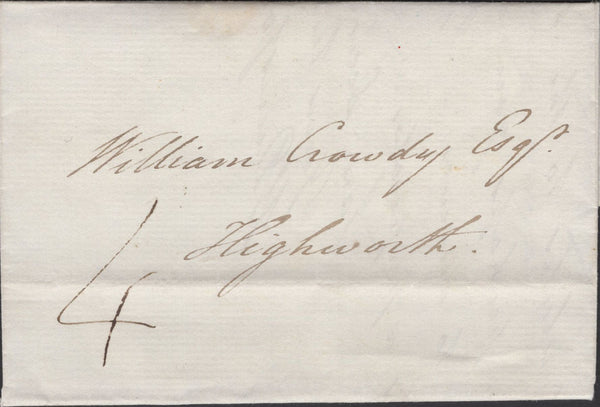 William Crowdy Esqr.
Highworth.
4